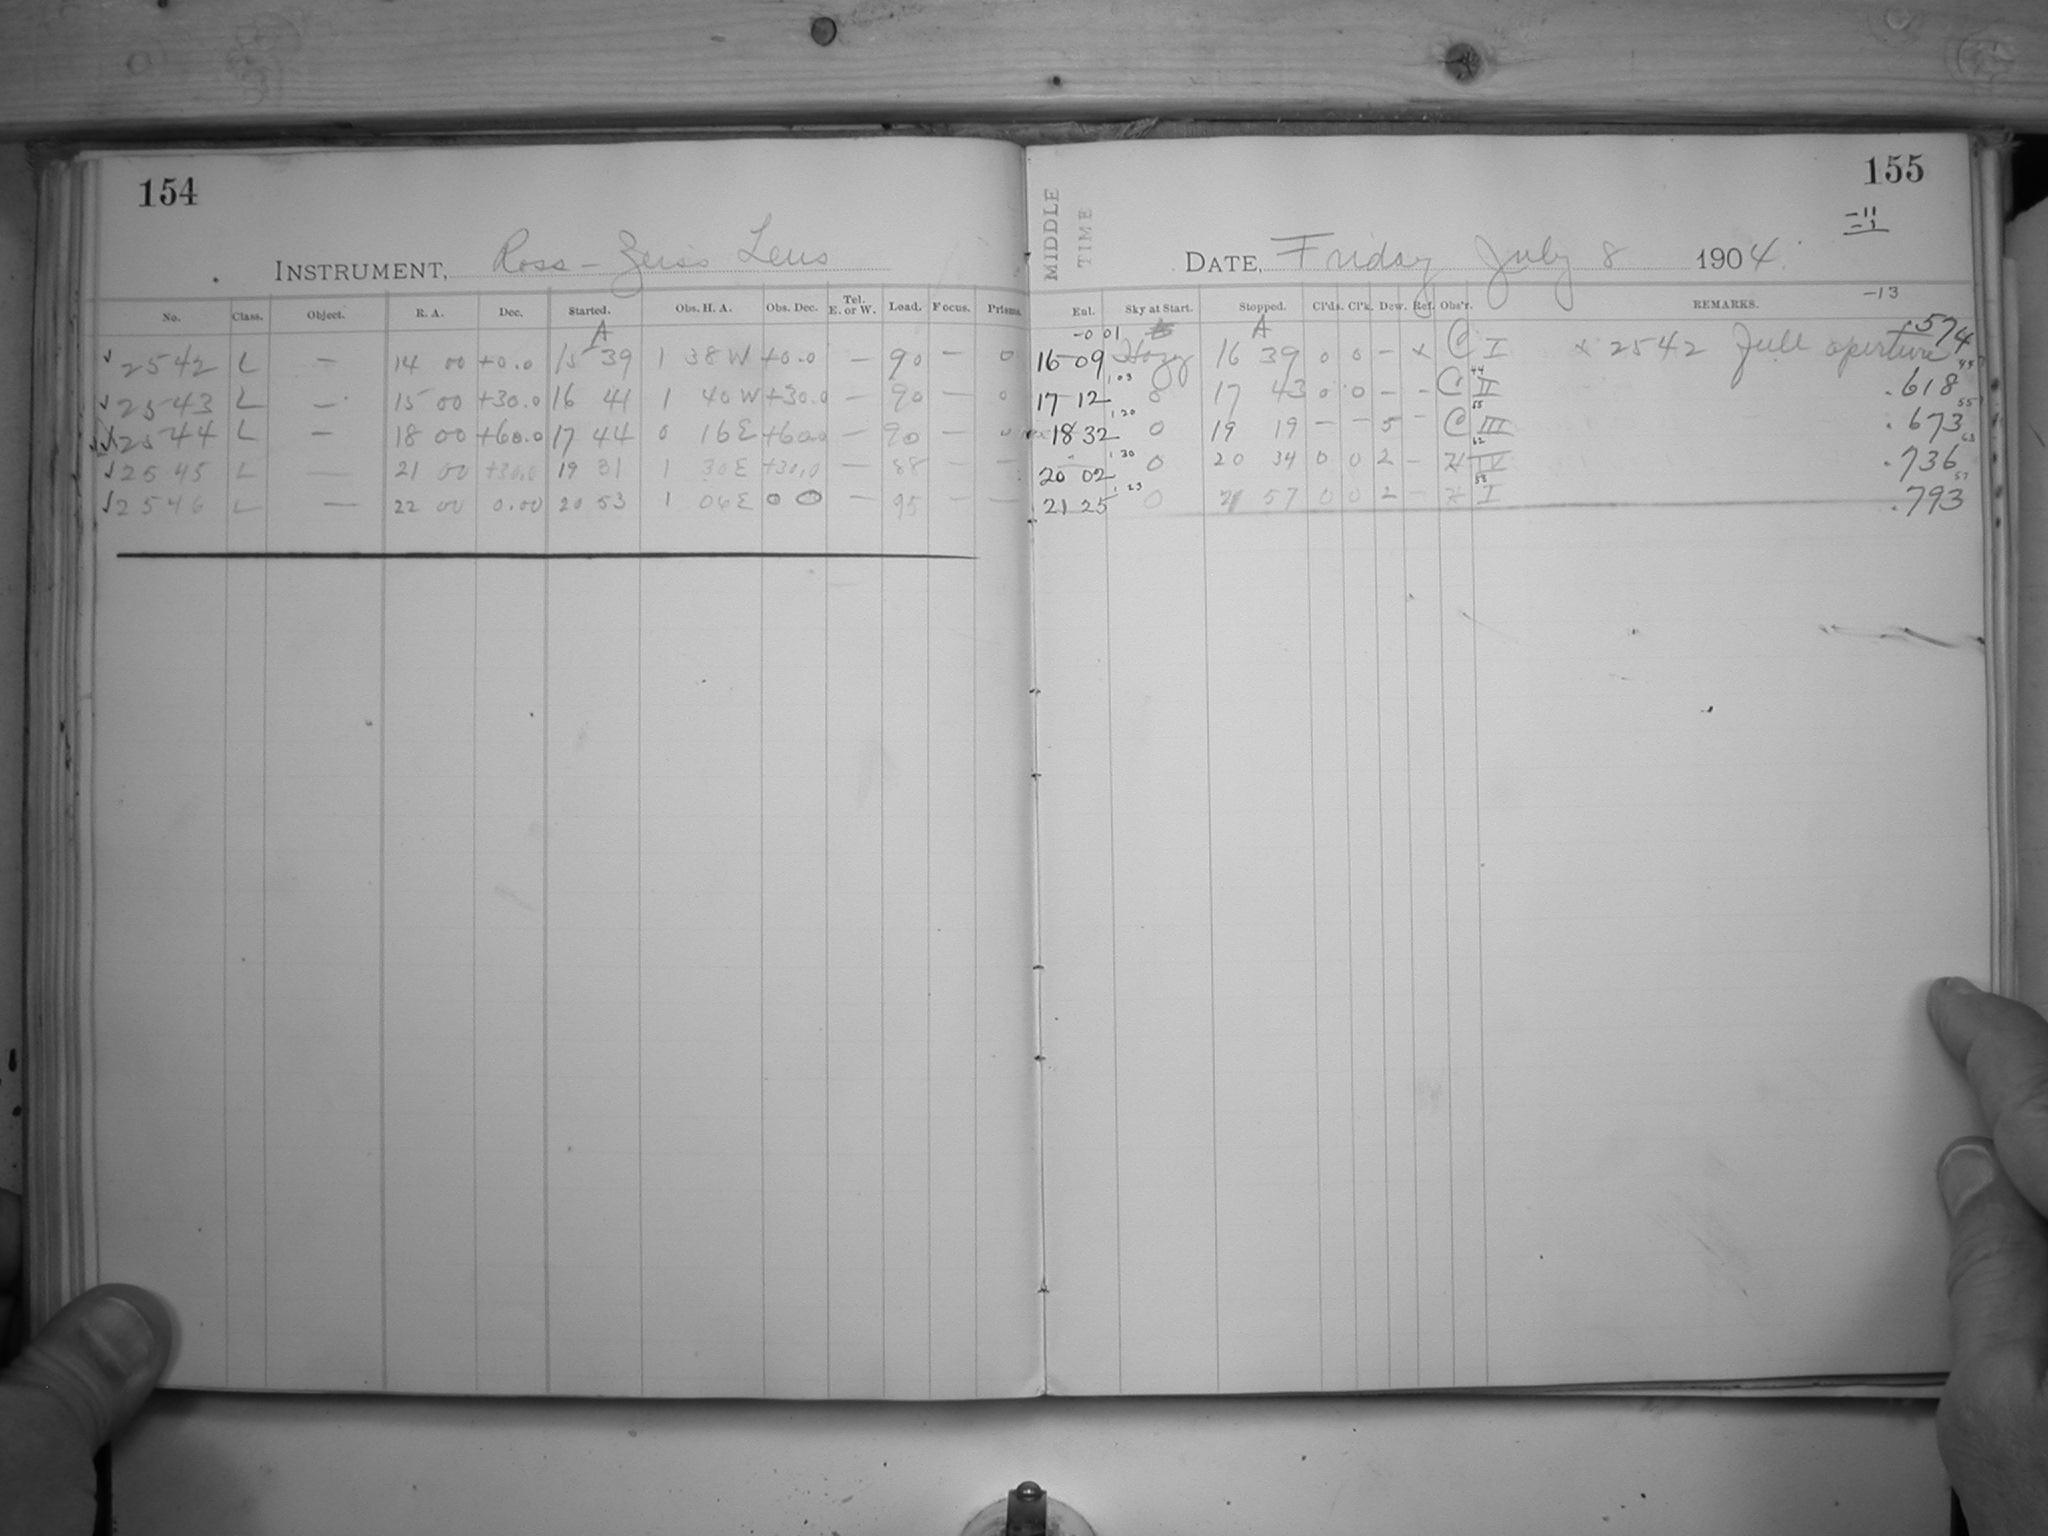 154
INSTRUMENT, Ross-Zeiss Lens
No. Class. Object. R. A. Dec. Started. Obs. H. A. Obs. Dec. Tel. E. or W. Load. Focus. Prisms.
A
√ 2542 L — 14 00 +0.0 15 39 1 38 W +0.0 — 90 — 0
√ 2543 L — 15 00 +30.0 16 41 1 40 W +30.0 — 90 — 0
√√ 2544 L — 18 00 +60.0 17 44 0 16 E +60.0 — 90 — 0
√ 2545 L — 21 00 +30.0 19 31 1 30 E +30.0 — 88 — —
√ 2546 L — 22 00 0.00 20 53 1 06 E 0 0 — 95 — —
155
-11
-1
MIDDLE
TIME
DATE, Friday July 8 1904.
Enl. Sky at Start. Stopped. Cl'ds. Cl'k. Dew. Ref. Obs'r. REMARKS.
-13
-0 01 A
16 09 Hazy 16 39 0 0 — x C I x 2542 Full aperture .574
1 03 44
17 12 0 17 43 0 0 — — C II .618
1 20 55
18 32 0 19 19 — — 5 — C III .673
1 30 62 63
20 02 0 20 34 0 0 2 — IV .736
1 23 58 57
21 25 0 21 57 0 0 2 — I .793